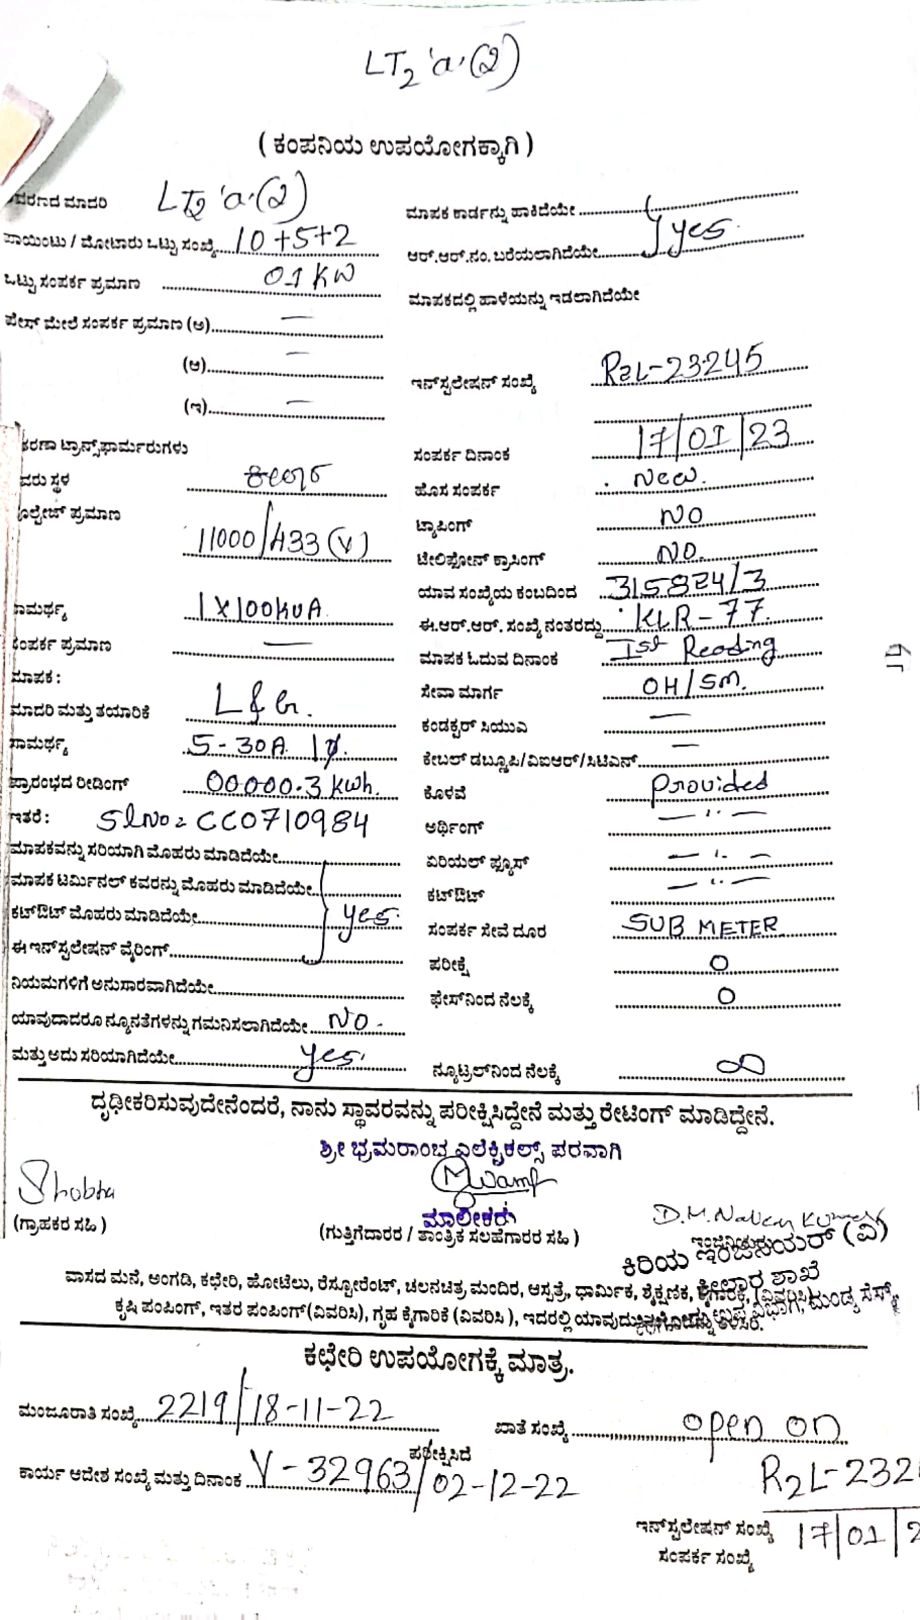 LT2 'a'(2)
( ಕಂಪನಿಯ ಉಪಯೋಗಕ್ಕಾಗಿ )
ಮಾದರಿ LT2 'a'(2)
ಪಾಯಿಂಟು / ಮೋಟಾರು ಒಟ್ಟು ಸಂಖ್ಯೆ 10+5+2
ಒಟ್ಟು ಸಂಪರ್ಕ ಪ್ರಮಾಣ 01 KW
ಪೇಸ್ ಮೇಲೆ ಸಂಪರ್ಕ ಪ್ರಮಾಣ (ಅ) —
(ಆ) —
(ಇ) —
ಕರಣಾ ಟ್ರಾನ್ಸ್‌ಫಾರ್ಮರುಗಳು
ವರು ಸ್ಥಳ
ವೋಲ್ಟೇಜ್ ಪ್ರಮಾಣ
11000/433 (V)
ಸಾಮರ್ಥ್ಯ 1X100KVA
ಸಂಪರ್ಕ ಪ್ರಮಾಣ —
ಮಾಪಕ :
ಮಾದರಿ ಮತ್ತು ತಯಾರಿಕೆ L & G.
ಸಾಮರ್ಥ್ಯ 5-30A 1φ.
ಪ್ರಾರಂಭದ ರೀಡಿಂಗ್ 00000.3 kwh.
ಇತರೆ : Sl No : CC0710984
ಮಾಪಕವನ್ನು ಸರಿಯಾಗಿ ಮೊಹರು ಮಾಡಿದೆಯೇ
ಮಾಪಕ ಟರ್ಮಿನಲ್ ಕವರನ್ನು ಮೊಹರು ಮಾಡಿದೆಯೇ
ಕಟ್‌ಔಟ್ ಮೊಹರು ಮಾಡಿದೆಯೇ yes.
ಈ ಇನ್‌ಸ್ಟಲೇಷನ್ ವೈರಿಂಗ್
ನಿಯಮಗಳಿಗೆ ಅನುಸಾರವಾಗಿದೆಯೇ
ಯಾವುದಾದರೂ ನ್ಯೂನತೆಗಳನ್ನು ಗಮನಿಸಲಾಗಿದೆಯೇ NO.
ಮತ್ತು ಅದು ಸರಿಯಾಗಿದೆಯೇ yes.
ಮಾಪಕ ಕಾರ್ಡನ್ನು ಹಾಕಿದೆಯೇ
ಆರ್.ಆರ್.ನಂ. ಬರೆಯಲಾಗಿದೆಯೇ yes.
ಮಾಪಕದಲ್ಲಿ ಹಾಳೆಯನ್ನು ಇಡಲಾಗಿದೆಯೇ
ಇನ್‌ಸ್ಟಲೇಷನ್ ಸಂಖ್ಯೆ R2L-23245
ಸಂಪರ್ಕ ದಿನಾಂಕ 17/01/23
ಹೊಸ ಸಂಪರ್ಕ New.
ಟ್ಯಾಪಿಂಗ್ NO
ಟೆಲಿಫೋನ್ ಕ್ರಾಸಿಂಗ್ NO.
ಯಾವ ಸಂಖ್ಯೆಯ ಕಂಬದಿಂದ 315824/3
ಈ.ಆರ್.ಆರ್. ಸಂಖ್ಯೆ ನಂತರದ್ದು KLR-77.
ಮಾಪಕ ಓದುವ ದಿನಾಂಕ Ist Reading
ಸೇವಾ ಮಾರ್ಗ OH/SM.
ಕಂಡಕ್ಟರ್ ಸಿಯುಎ —
ಕೇಬಲ್ ಡಬ್ಲ್ಯೂಪಿ/ವಿಐಆರ್/ಸಿಟಿಎನ್ —
ಕೊಳವೆ Provided
ಆರ್ಥಿಂಗ್ — " —
ಏರಿಯಲ್ ಫ್ಯೂಸ್ — " —
ಕಟ್‌ಔಟ್ — " —
ಸಂಪರ್ಕ ಸೇವೆ ದೂರ SUB METER
ಪರೀಕ್ಷೆ 0
ಫೇಸ್‌ನಿಂದ ನೆಲಕ್ಕೆ 0
ನ್ಯೂಟ್ರಲ್‌ನಿಂದ ನೆಲಕ್ಕೆ ∞
ದೃಢೀಕರಿಸುವುದೇನೆಂದರೆ, ನಾನು ಸ್ಥಾವರವನ್ನು ಪರೀಕ್ಷಿಸಿದ್ದೇನೆ ಮತ್ತು ರೇಟಿಂಗ್ ಮಾಡಿದ್ದೇನೆ.
ಶ್ರೀ ಭ್ರಮರಾಂಭ ಎಲೆಕ್ಟ್ರಿಕಲ್ಸ್ ಪರವಾಗಿ
Shobha
ಮಾಲೀಕರು
D.M. Naveen Kumar
(ಗ್ರಾಹಕರ ಸಹಿ )
(ಗುತ್ತಿಗೆದಾರರ / ತಾಂತ್ರಿಕ ಸಲಹೆಗಾರರ ಸಹಿ )
ಕಿರಿಯ ಇಂಜಿನಿಯರ್ (ವಿ)
ಕೀಲಾರ ಶಾಖೆ
ವಾಸದ ಮನೆ, ಅಂಗಡಿ, ಕಛೇರಿ, ಹೋಟೆಲು, ರೆಸ್ಟೋರೆಂಟ್, ಚಲನಚಿತ್ರ ಮಂದಿರ, ಆಸ್ಪತ್ರೆ, ಧಾರ್ಮಿಕ, ಶೈಕ್ಷಣಿಕ, ಕೈಗಾರಿಕೆ, (ವಿವರಿಸಿ)
ಕೃಷಿ ಪಂಪಿಂಗ್, ಇತರ ಪಂಪಿಂಗ್(ವಿವರಿಸಿ), ಗೃಹ ಕೈಗಾರಿಕೆ (ವಿವರಿಸಿ ), ಇದರಲ್ಲಿ ಯಾವುದು ತಿಳಿಸಿರಿ.
ಉಪ ವಿಭಾಗ, ಮಂಡ್ಯ ಸೆಸ್ಕ್
ಕಛೇರಿ ಉಪಯೋಗಕ್ಕೆ ಮಾತ್ರ.
ಮಂಜೂರಾತಿ ಸಂಖ್ಯೆ 2219/18-11-22
ಖಾತೆ ಸಂಖ್ಯೆ open on
ಪರೀಕ್ಷಿಸಿದೆ
ಕಾರ್ಯ ಆದೇಶ ಸಂಖ್ಯೆ ಮತ್ತು ದಿನಾಂಕ V-32963/02-12-22
R2L-232
ಇನ್‌ಸ್ಟಲೇಷನ್ ಸಂಖ್ಯೆ 17/01/2
ಸಂಪರ್ಕ ಸಂಖ್ಯೆ